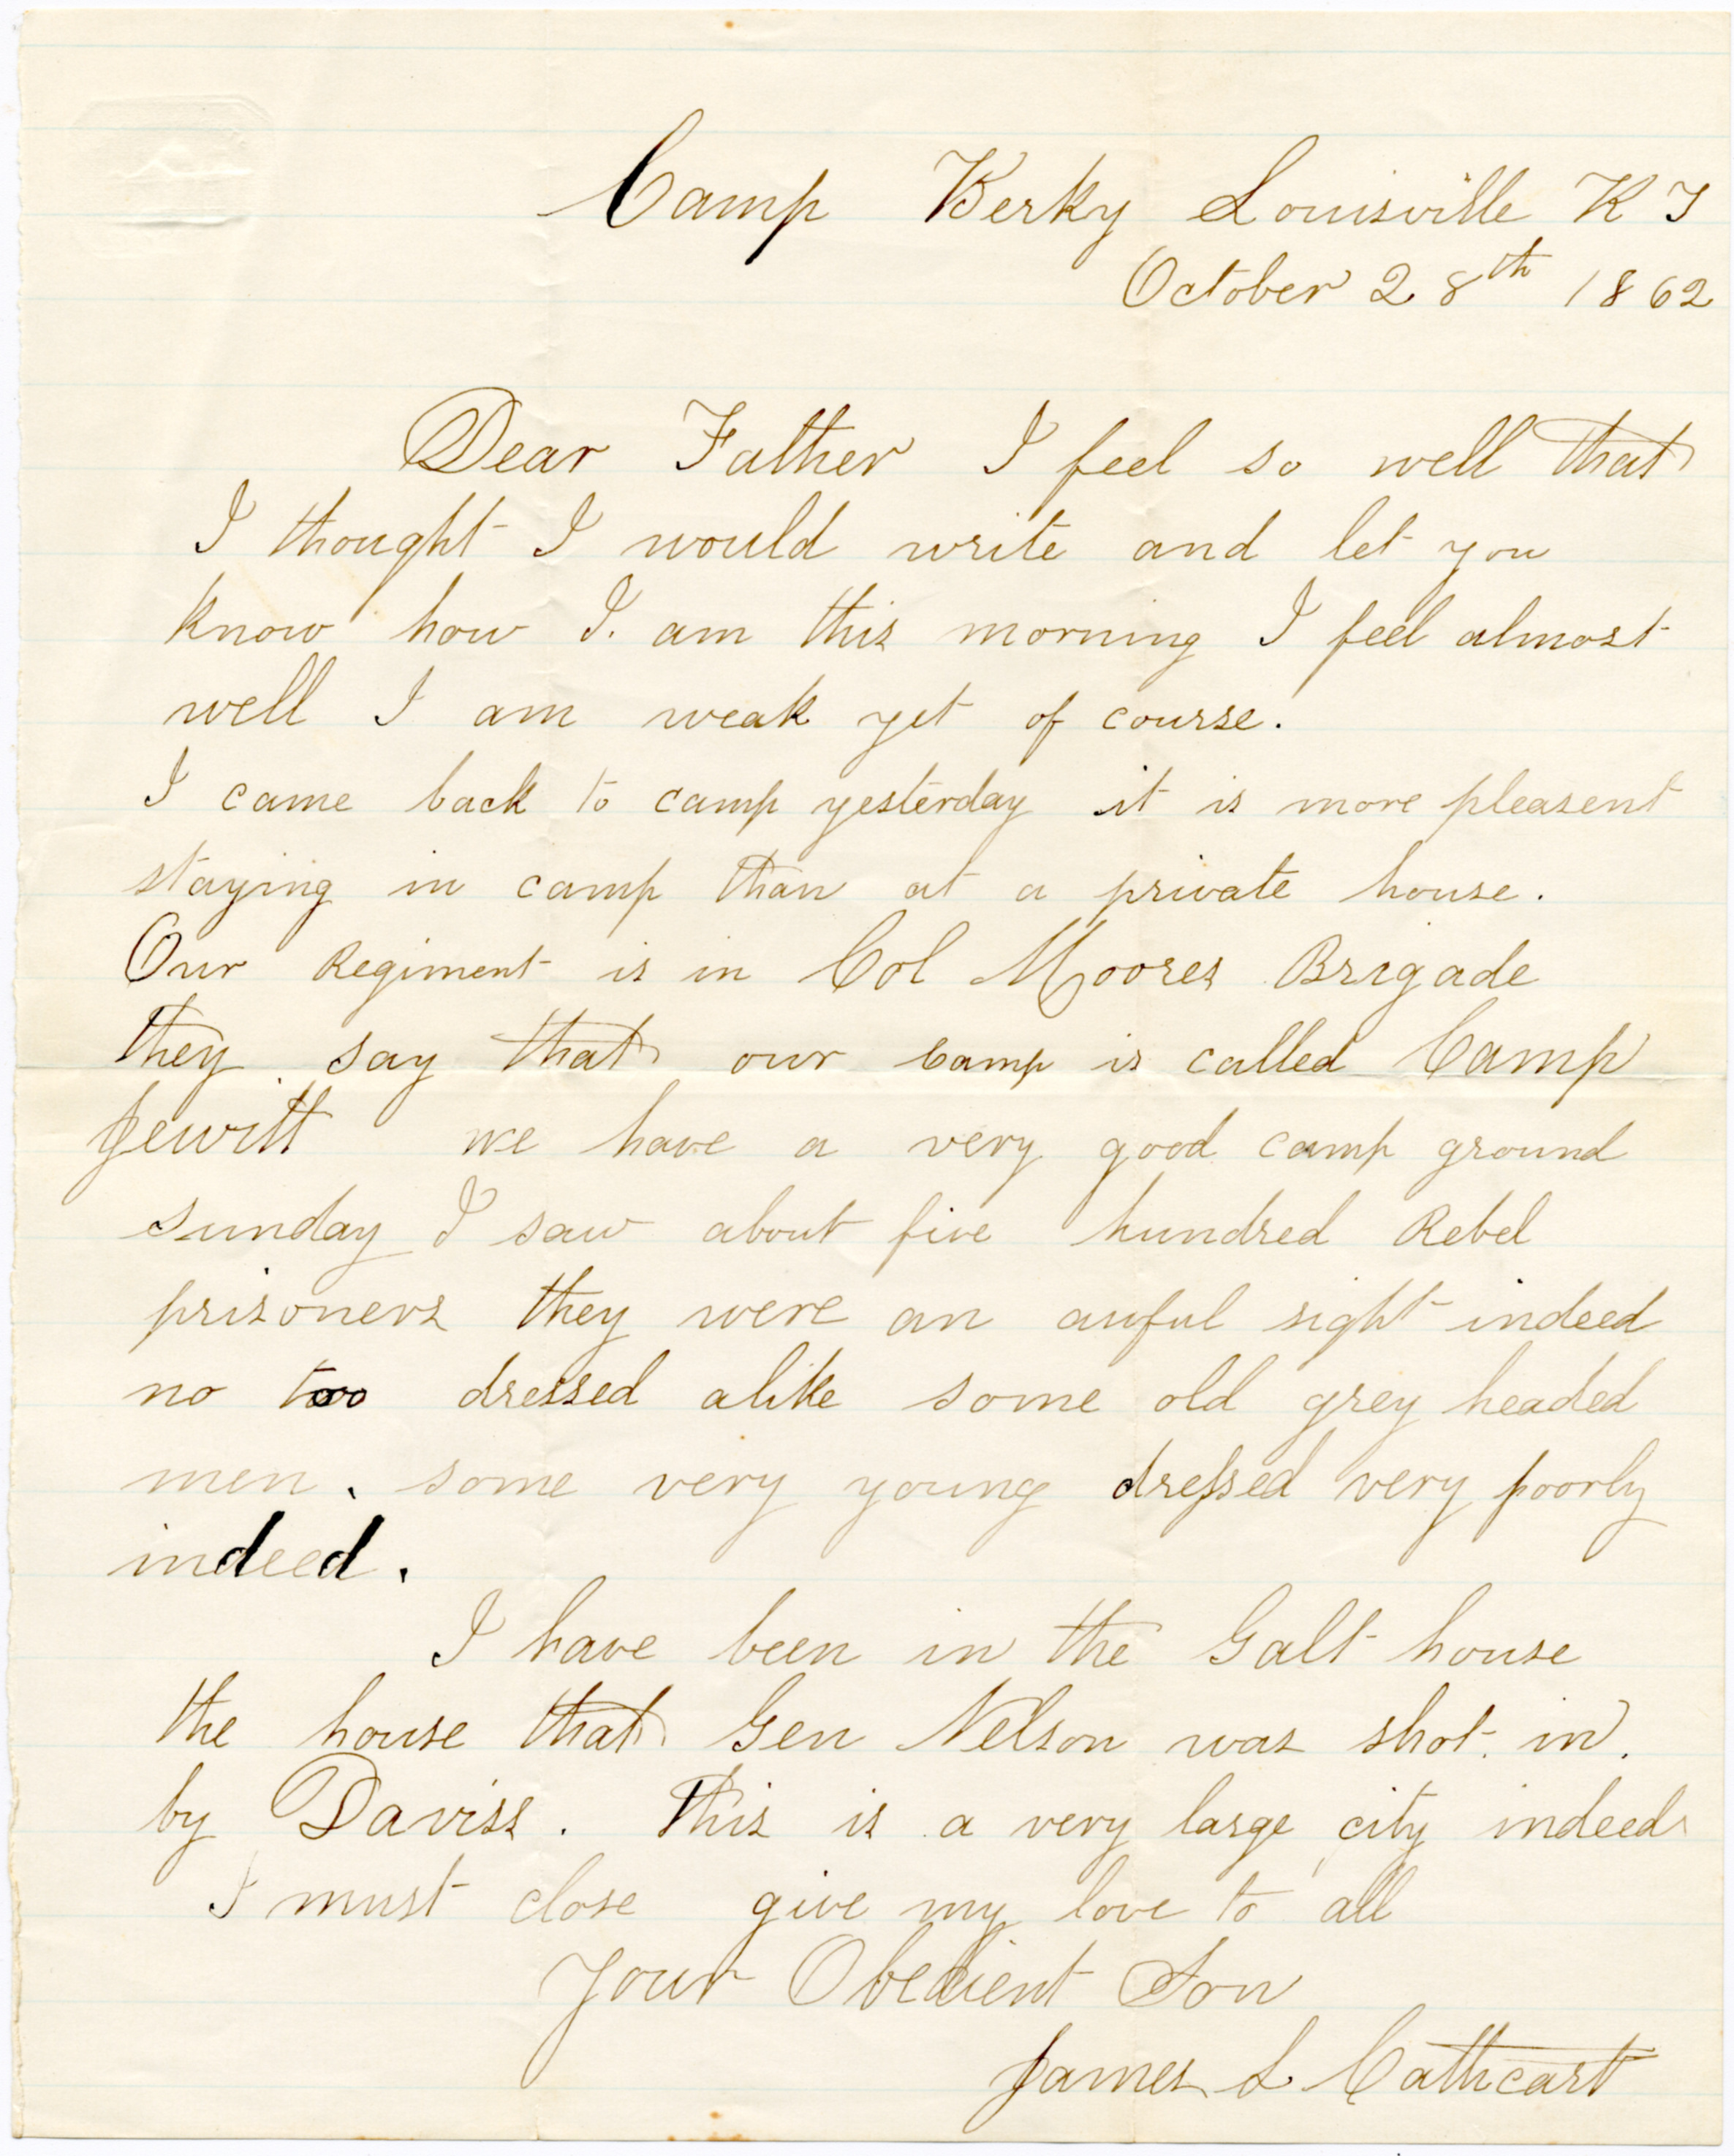 Camp Berky Louisville K Y
October 28th 1862
Dear Father I feel so well that
I thought I would write and let you
know how I. am this morning I feel almost
well I am weak yet of course.
I came back to camp yesterday it is more pleasent
staying in camp than at a private house.
Our Regiment is in Col Moores Brigade
they say that our Camp is called Camp
Jewitt we have a very good camp ground
sunday I saw about five hundred Rebel
prisoners they were an awful sight indeed
no two dressed alike some old grey headed
men. some very young dressed very poorly
indeed.
I have been in the Galt house
the house that Gen Nelson was shot in.
by Daviss. This is a very large city indeed
I must close give my love to all
Your Obedient Son
James L Cathcart